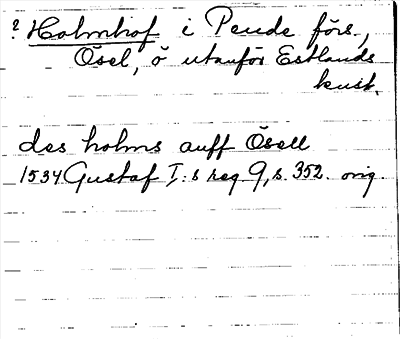 ? Holmhof i Peude förs.,
Ösel, ö utanför Estlands
kust.
des holms auff Ösell
1534 Gustaf I:s reg 9, s. 352. orig.